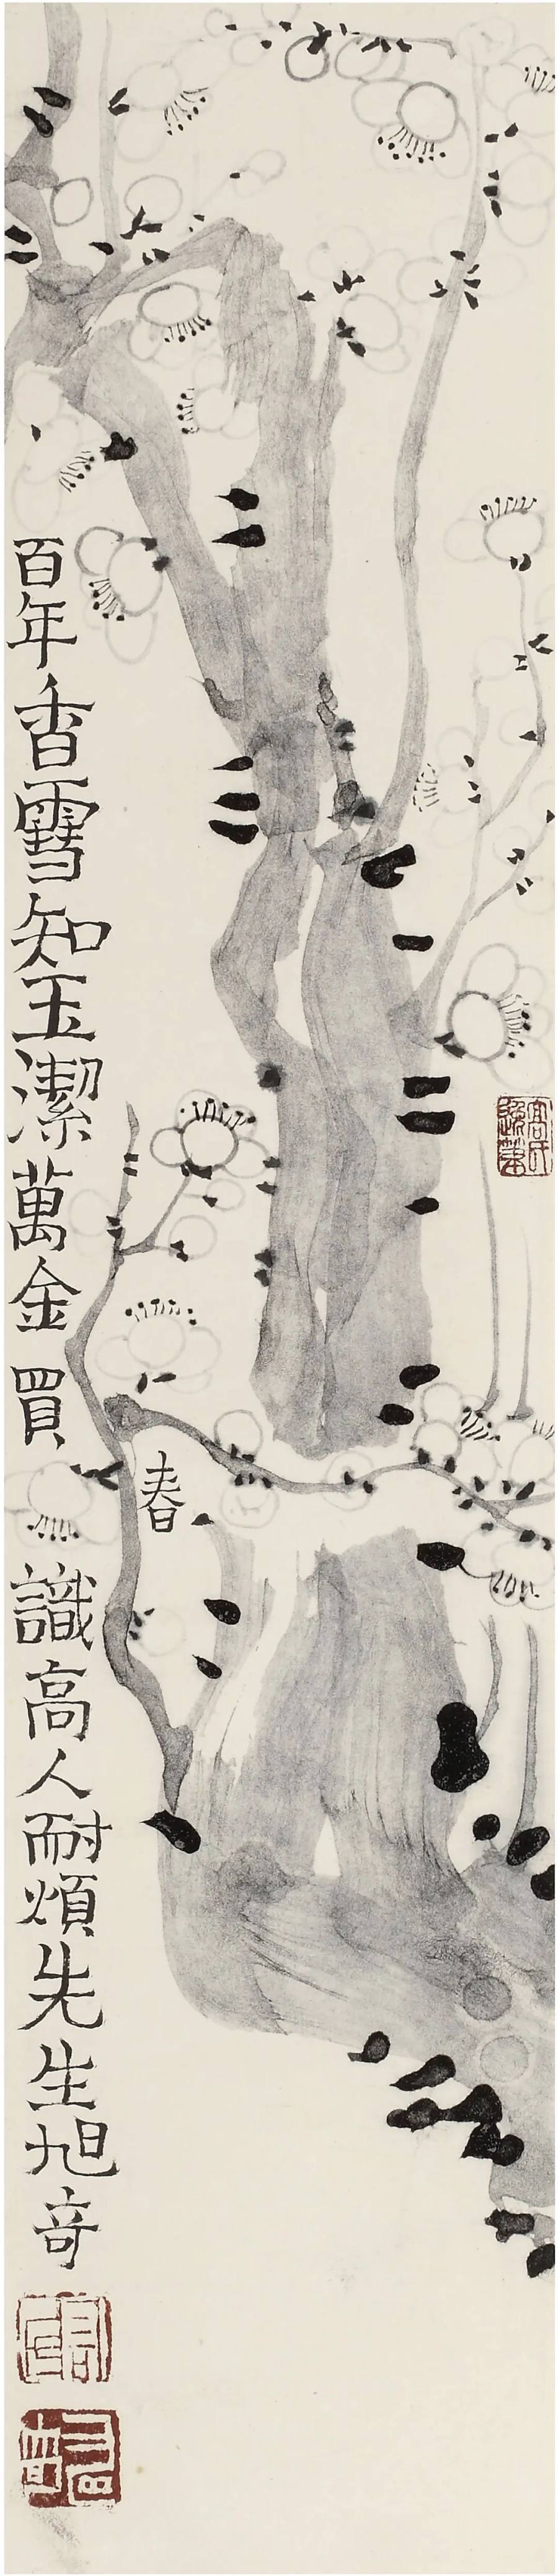 百年香雪知玉潔萬金買春識高人耐煩先生旭竒